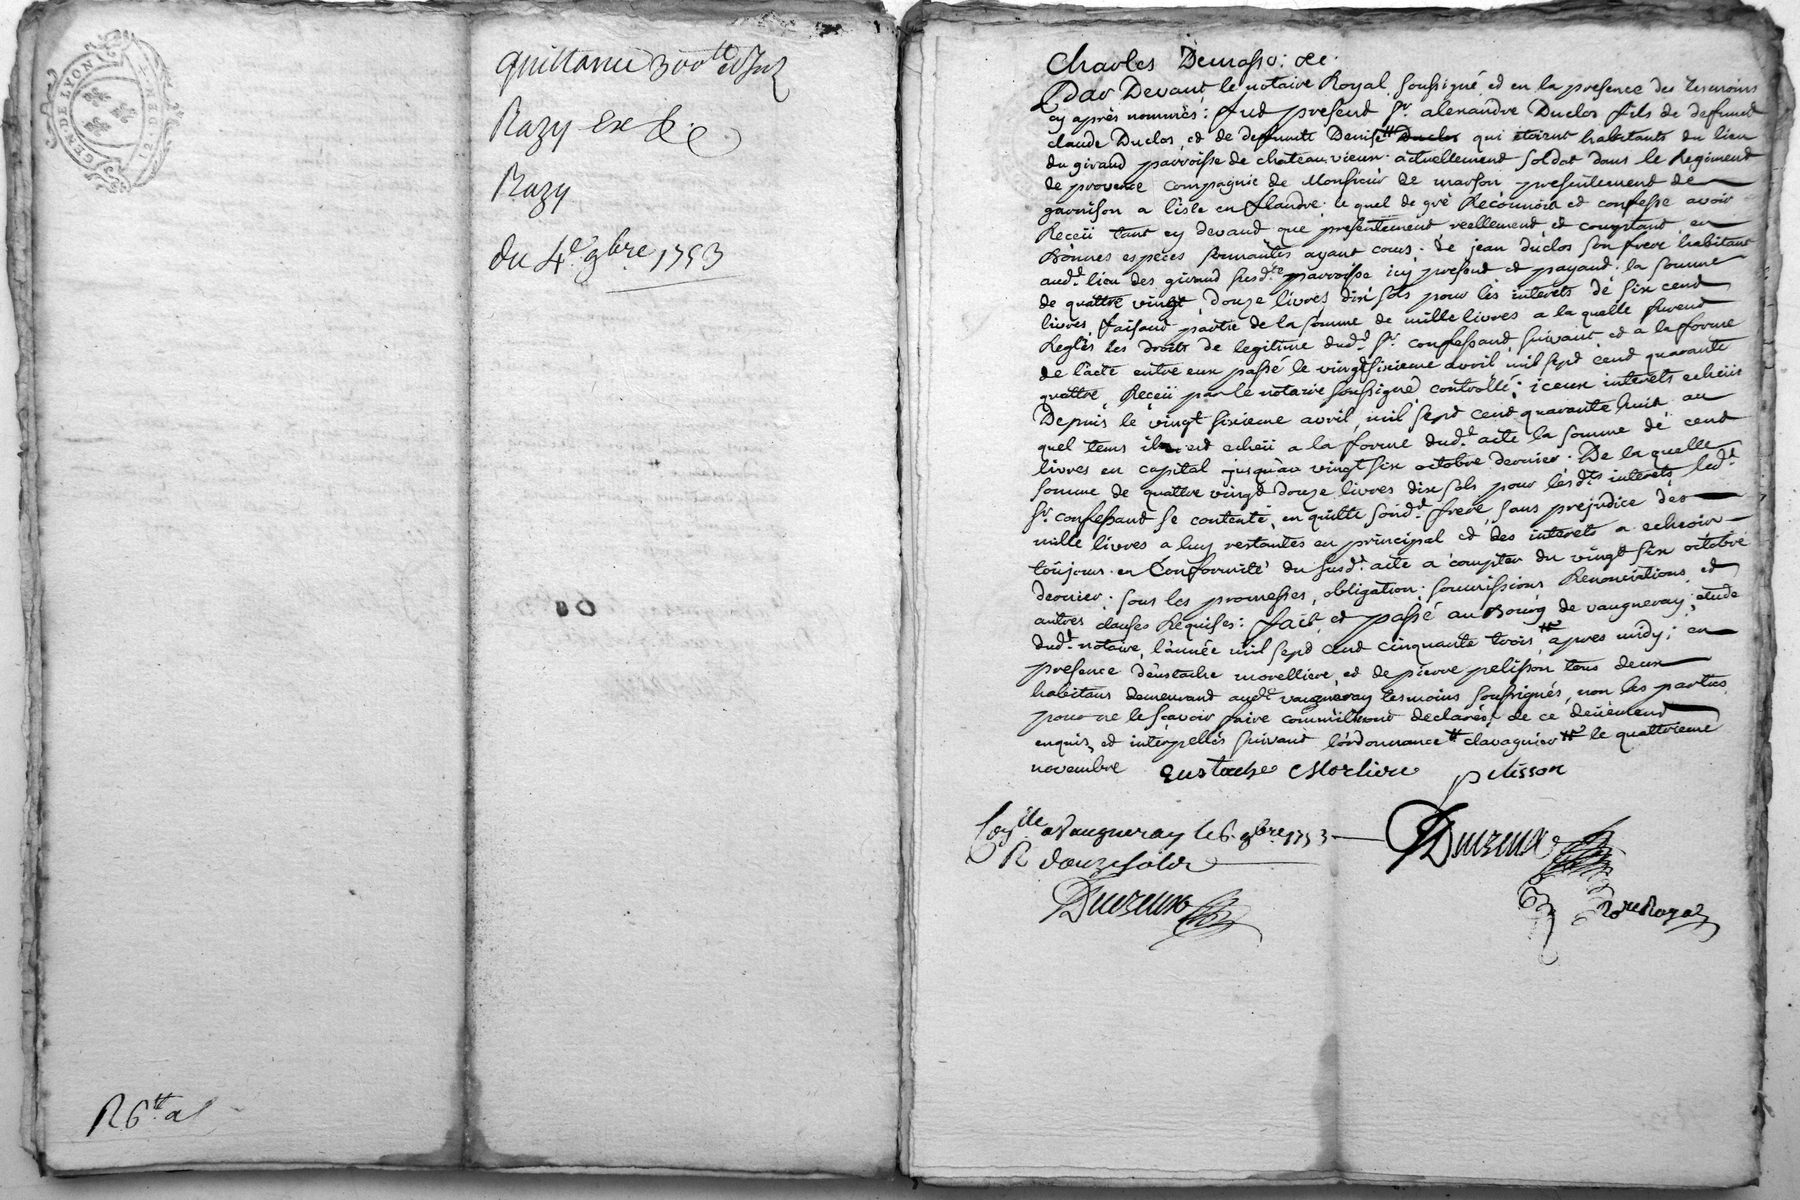 GEN. DE LYON
12. DEN.
quittance 300tt et Int
Razy
Razy
du 4e 9bre 1753
R 6tt a
Charles Demasso; &c.
Par Devant le notaire Royal soussigné, et en la presence des tesmoins
cy après nommés: fut present Sr. alexandre Duclos fils de defunt
claude Duclos, et de defunte Denise # Duclos qui etoient habitants du lieu
du giraud parroisse de chateau vieux. actuellement soldat dans le Regiment
de provence compagnie de Monsieur de marson presentement de
garnison a lisle en flandre; le quel de gré Reconnoit et confesse avoir
Receü tant cy devant que presentement reellement, et comptant en
Bonnes especes sonnantes ayant cours; de jean duclos son frere habitant
aud.t lieu des giraud susd.te parroisse icy present et payant; la somme
de quattre vingt douze livres dix sols pour les interets de six cent
livres, faisant partie de la somme de mille livres a la quelle furent
Reglés les droits de legitime dud.t Sr. confessant suivant, et a la forme
de l'acte entre eux passé le vingtsixieme avril mil sept cent quarante
quattre, Receü par le notaire soussigné, controllé; iceux interets echeüs
Depuis le vingt sixieme avril, mil sept cent quarante huit, au
quel tems il est echeü a la forme dud.t acte la somme de cent
livres en capital jusqu'au vingt six octobre dernier. De la quelle
somme de quattre vingt douze livres dix sols pour lesd.ts interets led.t
Sr. confessant se contente, en quitte sond.t frere, sans prejudice des
mille livres a luy restantes en principal et des interets a echeoir
toujours en Conformité du susd.t acte a compter du vingt six octobre
dernier; sous les promesses, obligation, soumissions Renonciations, et
autres clauses Requises: fait, et passé au Bourg de vaugneray, etude
dud.t notaire, l'année mil sept cent cinquante trois # apres midy; en
presence d'eustache morelliere, et de pierre pelisson tous deux
habitans demeurant aud.t vaugneray tesmoins soussignés, non les parties
pour ne le sçavoir faire comm'ils ont declarés, de ce deüement
enquis, et interpellés suivant l'ordonnance # clavagnier # le quattrieme
novembre Eustache Morliere pelisson
Con.lé a Vaugneray le 6. 9bre 1753
R douze sols
Duvreux
Duvreux
No.re Royal